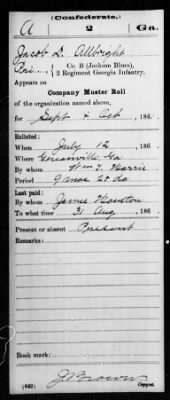 (Confederate.)
A 2 Ga.
Jacob D. Allbright
Pri, Co. B (Jackson Blues),
2 Regiment Georgia Infantry.
Appears on
Company Muster Roll
of the organization named above,
for Sept & Oct, 186 .
Enlisted:
When July 12, 186 .
Where Greenville, Ga
By whom Wm T. Harris
Period 9 mos 20 da
Last paid:
By whom James Houston
To what time 31 Aug, 186 .
Present or absent Present
Remarks:
Book mark:
(642) J Brown
Copyist.